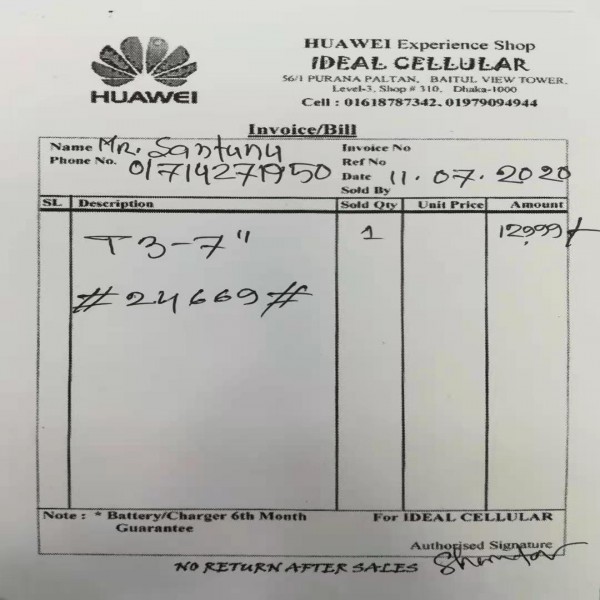 HUAWEI
HUAWEI Experience Shop
IDEAL CELLULAR
56/1 PURANA PALTAN, BAITUL VIEW TOWER,
Level-3, Shop # 310, Dhaka-1000
Cell : 01618787342, 01979094944
Invoice/Bill
Name Mr. Santunu
Phone No. 01714271950
Invoice No
Ref No
Date 11.07.2020
Sold By
SL Description Sold Qty Unit Price Amount
T3-7" 1 12,999/
#24669#
Note : * Battery/Charger 6th Month
Guarantee
For IDEAL CELLULAR
Authorised Signature
NO RETURN AFTER SALES